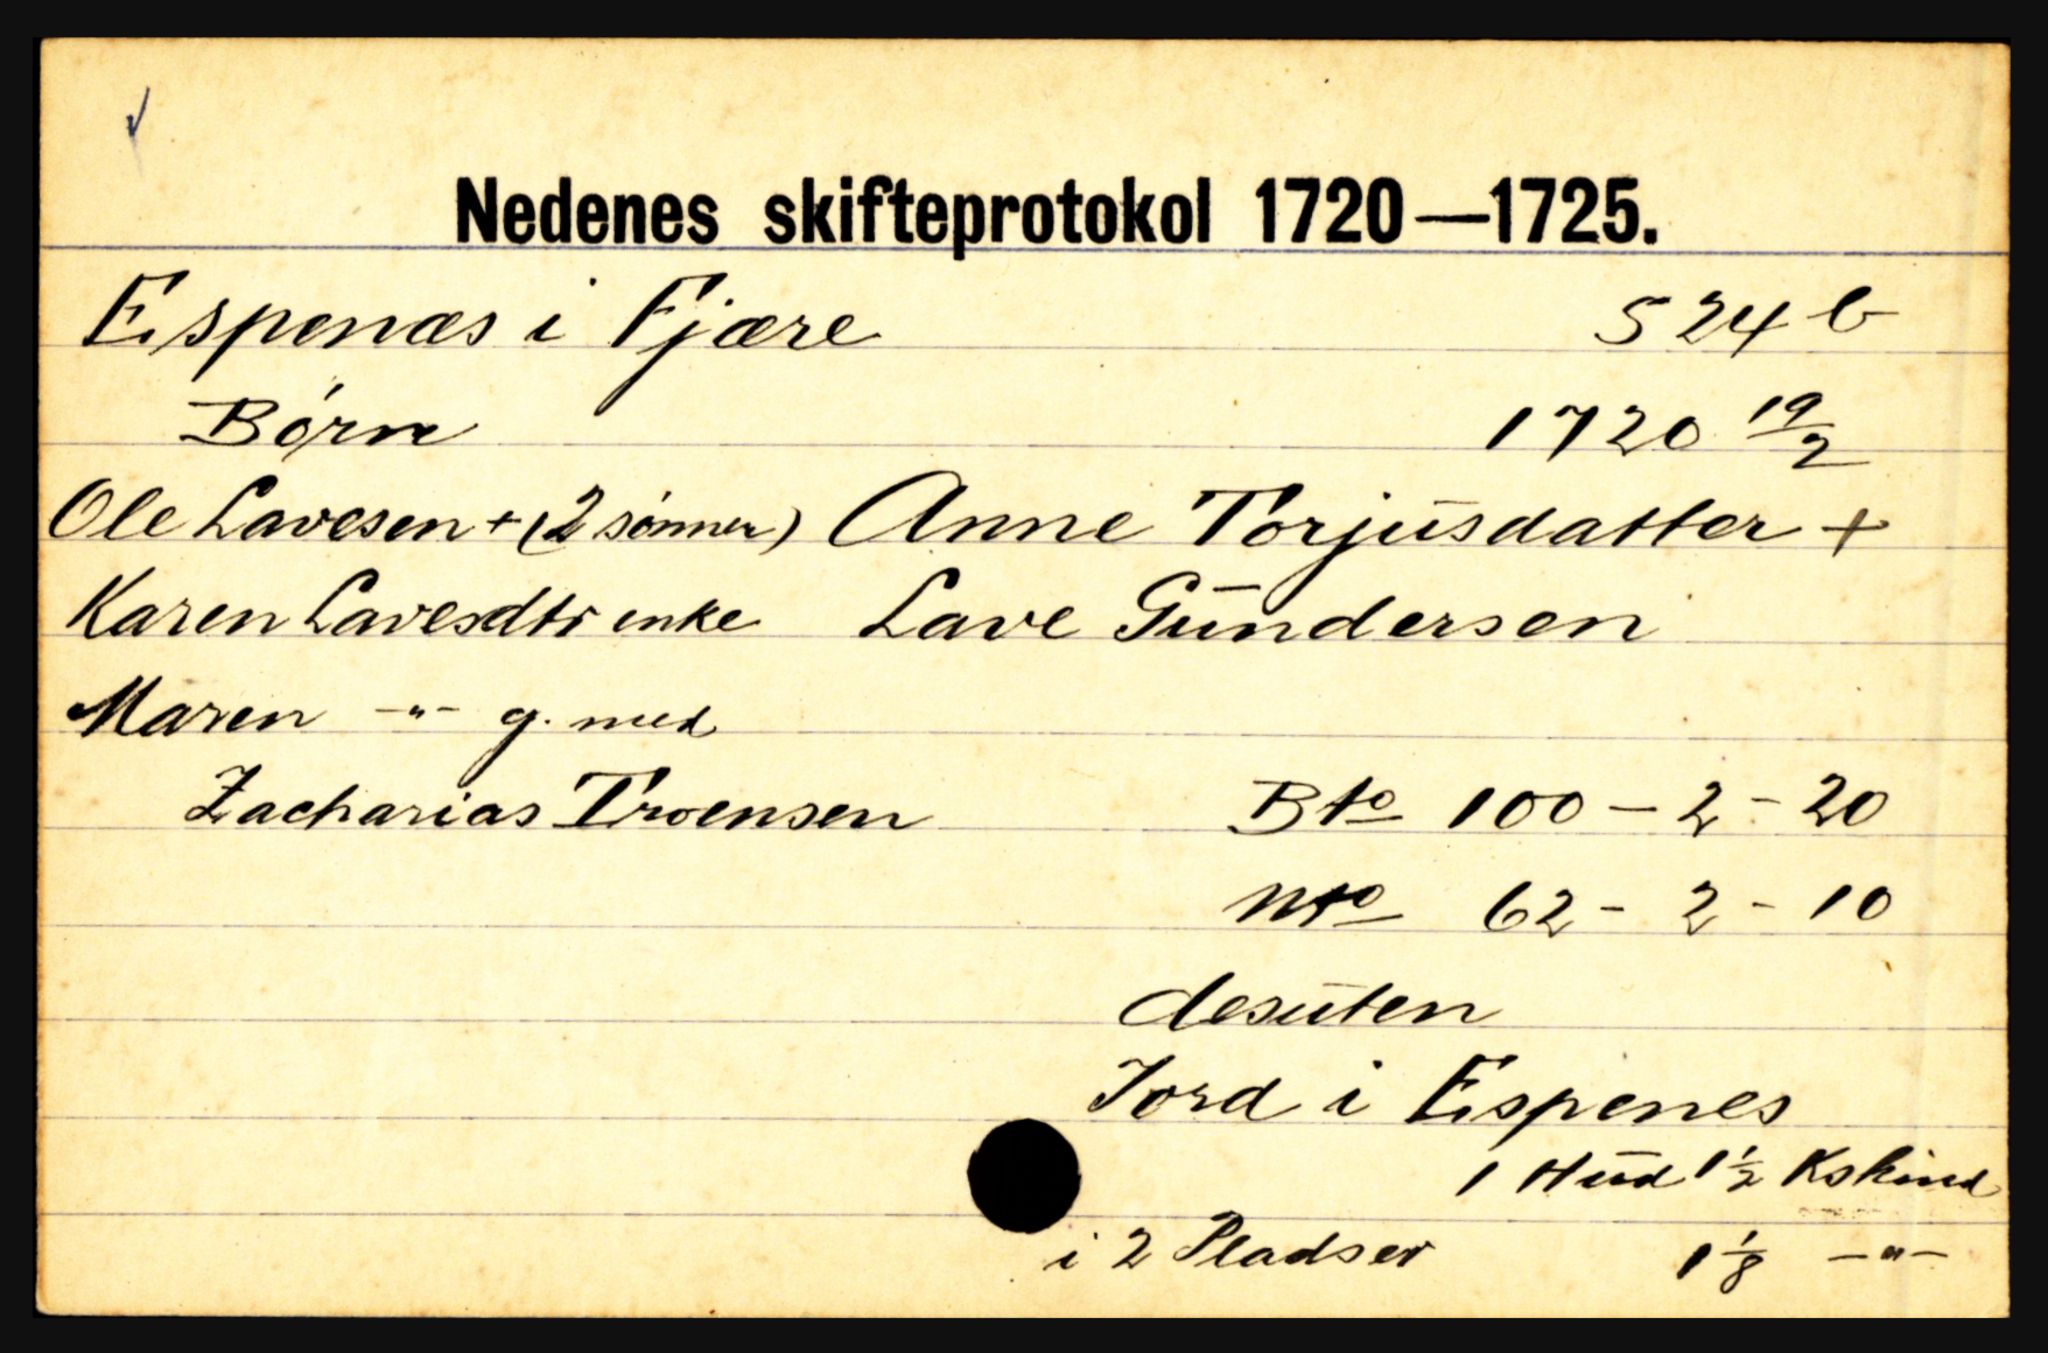 Nedenes skifteprotokol 1720—1725.
Espenæs i Fjære 524 b
Børn 1720 19/2
Ole Lavesen + (2 sønner) Anne Torjusdatter +
Karen Lavesdtr enke Lave Gundersen
Maren -"- g. med
Zacharias Troensen Bto 100 - 2 - 20
Nto 62 - 2 - 10
desuten
Jord i Espenes
1 Hud 1½ Kskind
i 2 Pladser 1⅛ -"-